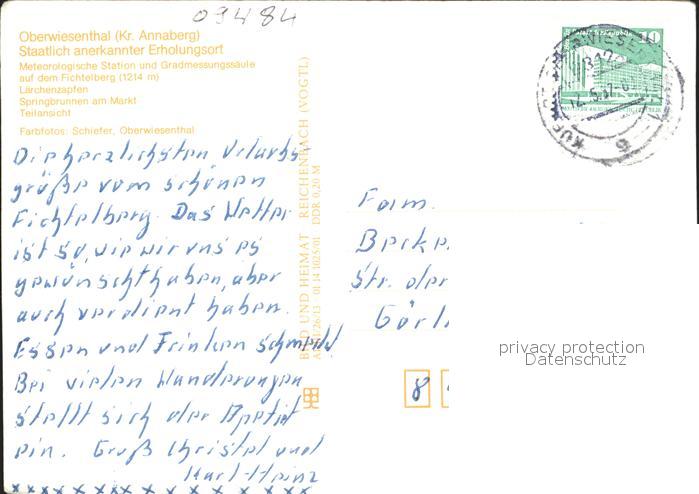 09484
Oberwiesenthal (Kr. Annaberg)
Staatlich anerkannter Erholungsort
Meteorologische Station und Gradmessungssäule
auf dem Fichtelberg (1214 m)
Lärchenzapfen
Springbrunnen am Markt
Teilansicht
Farbfotos: Schiefer, Oberwiesenthal
Die herzlichsten Urlaubs-
grüße vom schönen
Fichtelberg. Das Wetter
ist so, wie wir uns es
gewünscht haben, aber
auch verdient haben.
Essen und Trinken schmeckt
Bei vielen Wanderungen
stellt sich der Appetit
ein. Gruß Christel und
Karl-Heinz
BILD UND HEIMAT REICHENBACH (VOGTL)
01 14 1025/01 DDR 0,20 M
10
Fam.
Becke
Str. der
Görl
8
privacy protection
Datenschutz